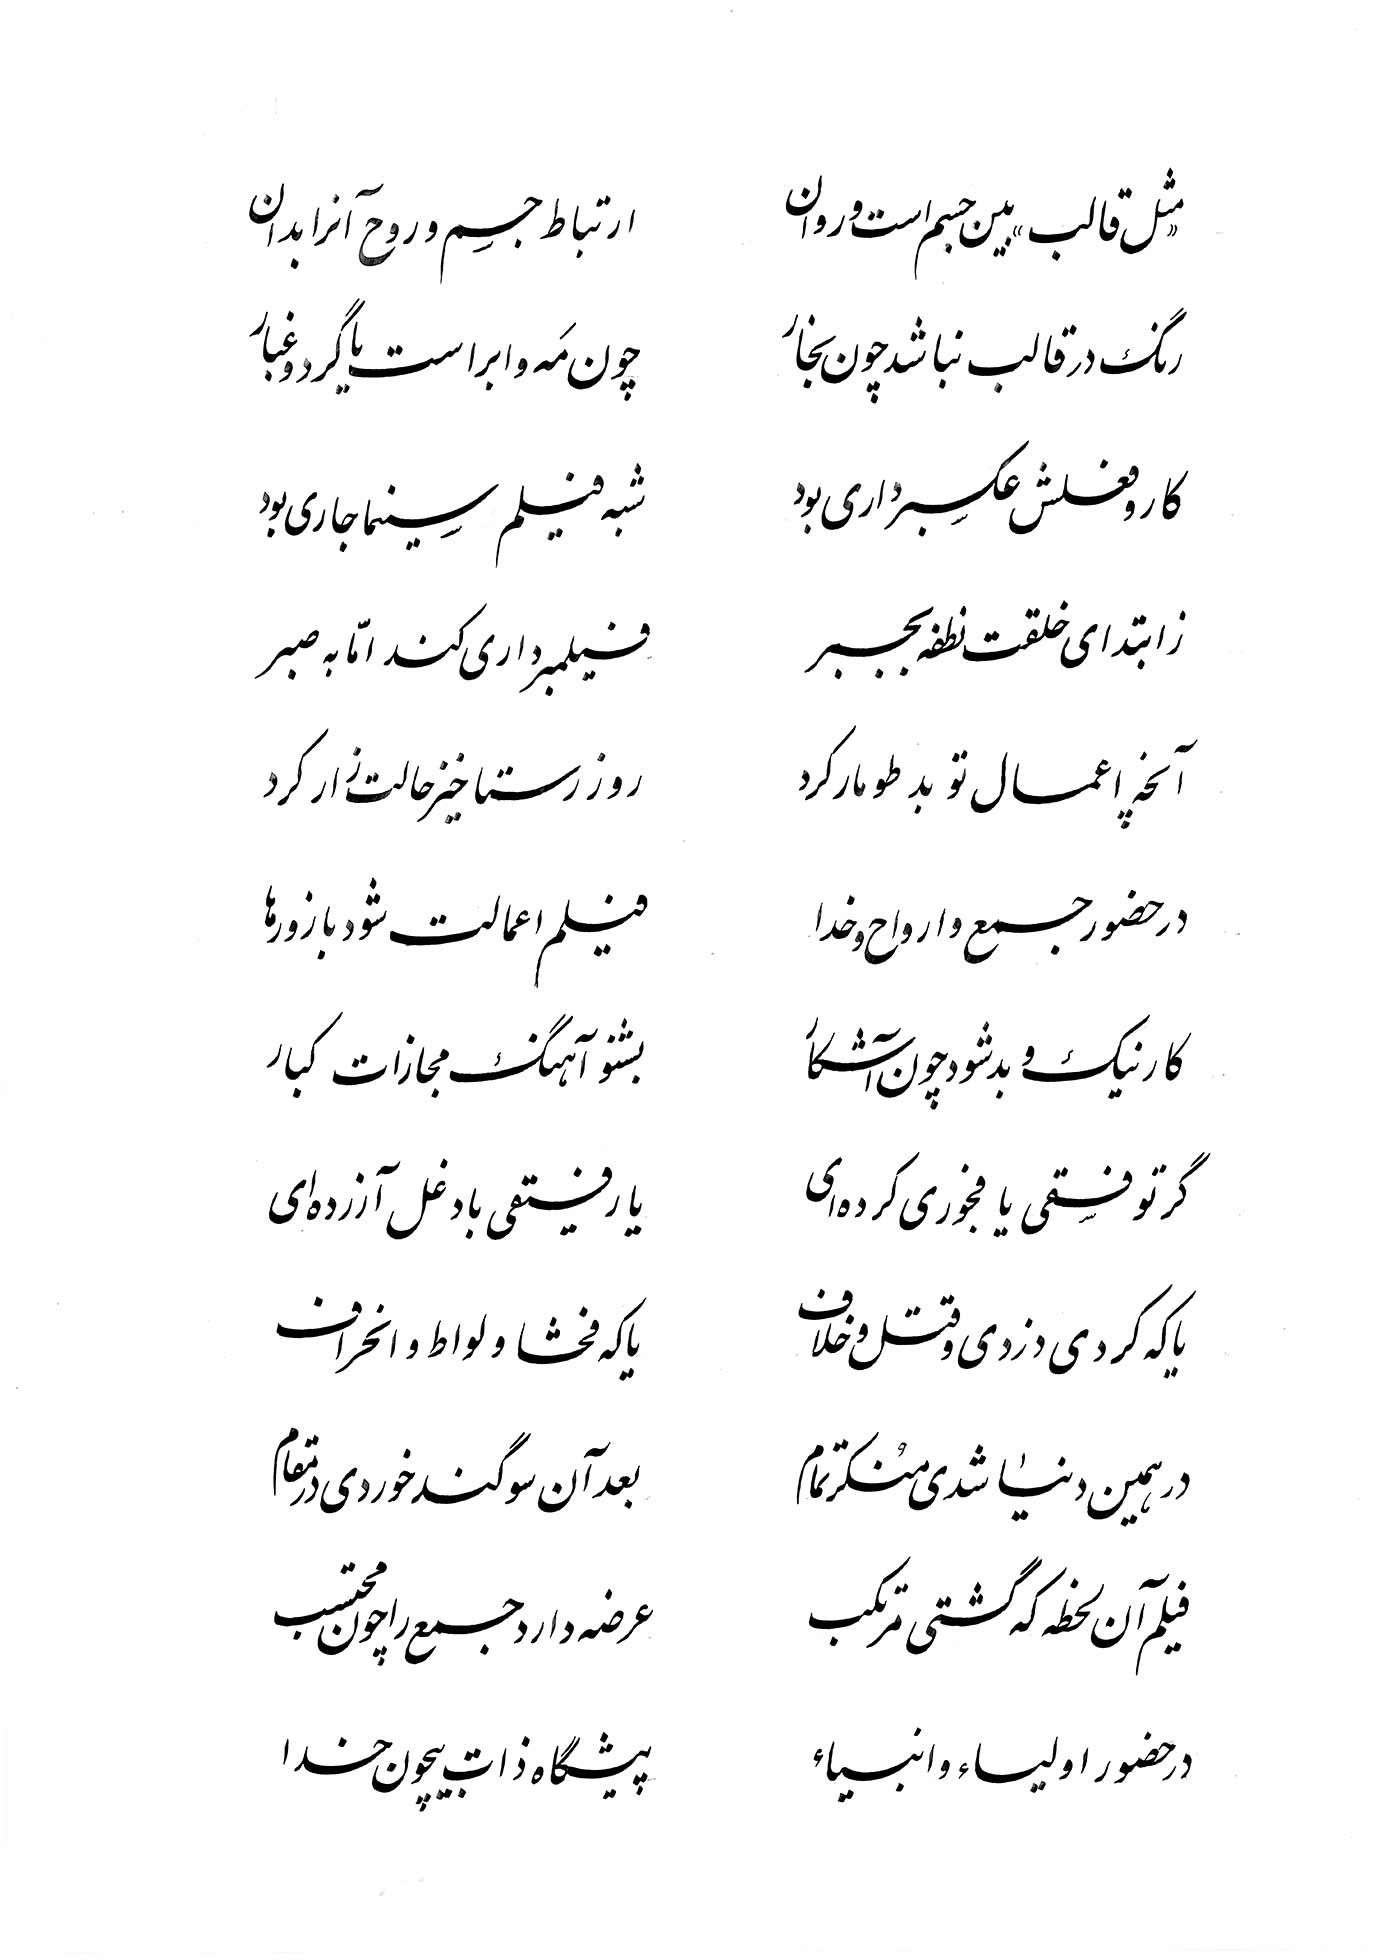 «مثل قالب» بین جسم است و روان ارتباط جسم و روح آنرا بدان
رنگ در قالب نباشد چون بخار چون مَه و ابر است یا گرد و غبار
کار و فعلش عکسبرداری بود شبه فیلم سینما جاری بود
ز ابتدای خلقت نطفه بجبر فیلمبرداری کند امّا به صبر
آنچه اعمال تو بد طومار کرد روز رستاخیز حالت زار کرد
در حضور جمع و ارواح و خدا فیلم اعمالت شود باز ورها
کار نیک و بد شود چون آشکار بشنو آهنگ مجازات کبار
گر تو فسقی یا فجوری کرده‌ای یا رفیقی با دغل آزرده‌ای
یا که کردی دزدی و قتل و خلاف یا که فحشا و لواط و انحراف
در همین دنیا شدی مُنکر تمام بعد آن سوگند خوردی در مقام
فیلم آن لحظه که گشتی مرتکب عرضه دارد جمع را چون محتسب
در حضور اولیاء و انبیاء پیشگاه ذات بیچون خدا